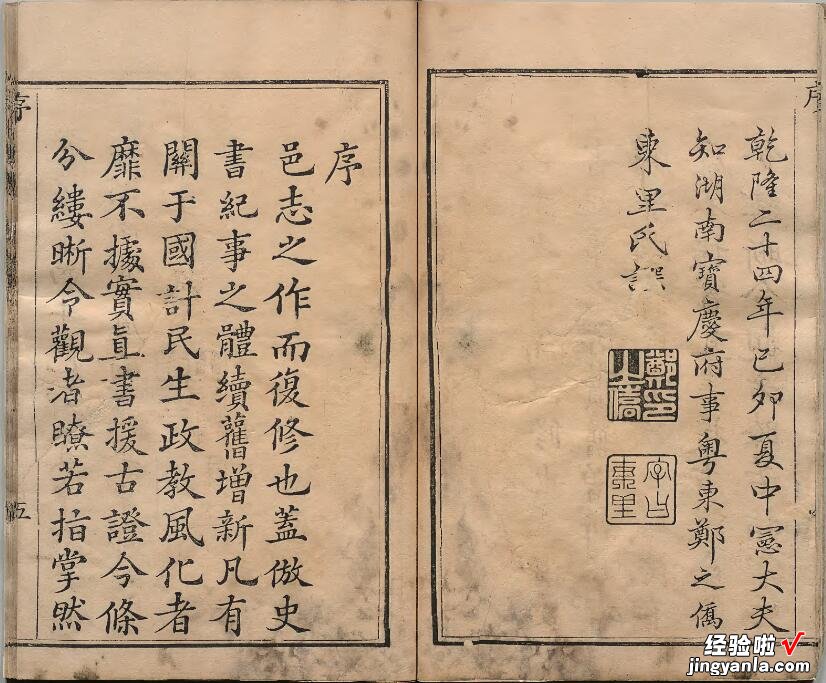 序
乾隆二十四年己卯夏中憲大夫
知湖南寶慶府事粵東鄭之僑
東里氏譔
鄭印
之僑
字曰
東里
序
邑志之作而復修也蓋倣史
書紀事之體續舊增新凡有
關于國計民生政教風化者
靡不據實直書援古證今條
分縷晰令觀者瞭若指掌然
序
五
经验啦√
jingyanla.com